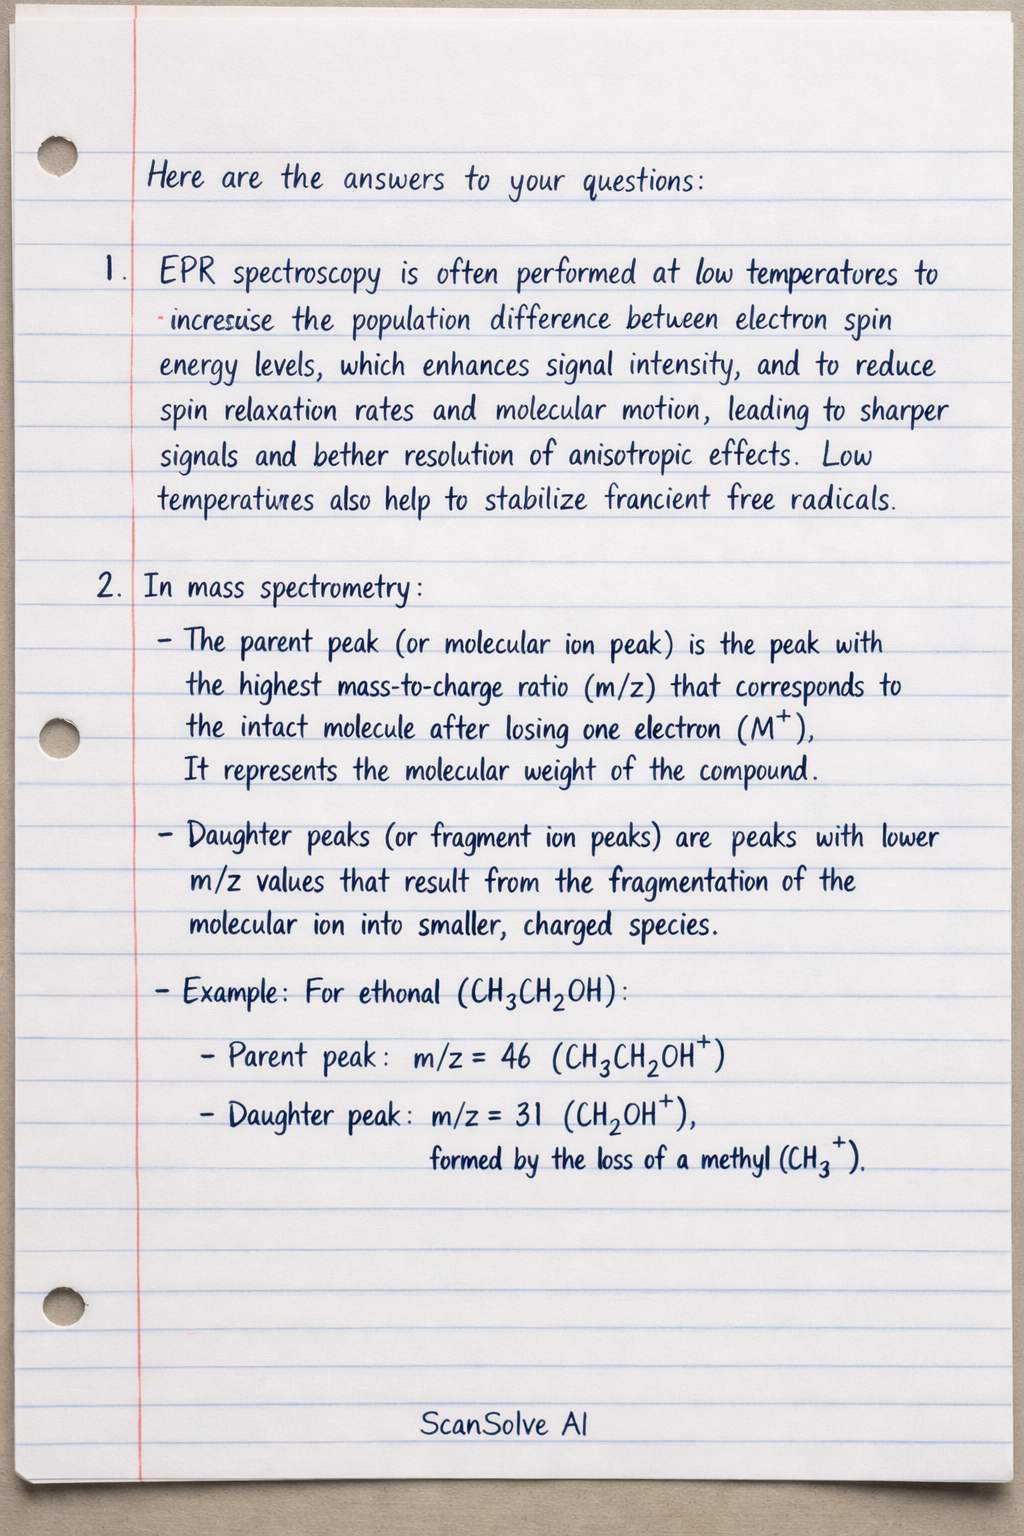 Here are the answers to your questions:
1. EPR spectroscopy is often performed at low temperatures to
increase the population difference between electron spin
energy levels, which enhances signal intensity, and to reduce
spin relaxation rates and molecular motion, leading to sharper
signals and bether resolution of anisotropic effects. Low
temperatures also help to stabilize francient free radicals.
2. In mass spectrometry:
– The parent peak (or molecular ion peak) is the peak with
the highest mass-to-charge ratio (m/z) that corresponds to
the intact molecule after losing one electron (M⁺),
It represents the molecular weight of the compound.
– Daughter peaks (or fragment ion peaks) are peaks with lower
m/z values that result from the fragmentation of the
molecular ion into smaller, charged species.
– Example: For ethonal (CH₃CH₂OH):
– Parent peak: m/z = 46 (CH₃CH₂OH⁺)
– Daughter peak: m/z = 31 (CH₂OH⁺),
formed by the loss of a methyl (CH₃⁺).
ScanSolve AI